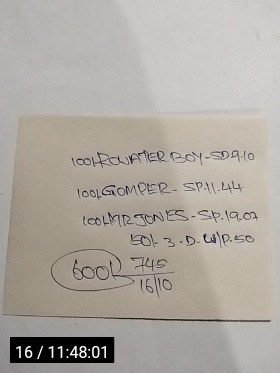 100/- ROWATTER BOY - SD.9.10
100/- GOMPER - SP.11.44
100/- MR JONES - SP.19.07
50/- 3.D.W/P.50
600/- 745
16/10
16 / 11:48:01